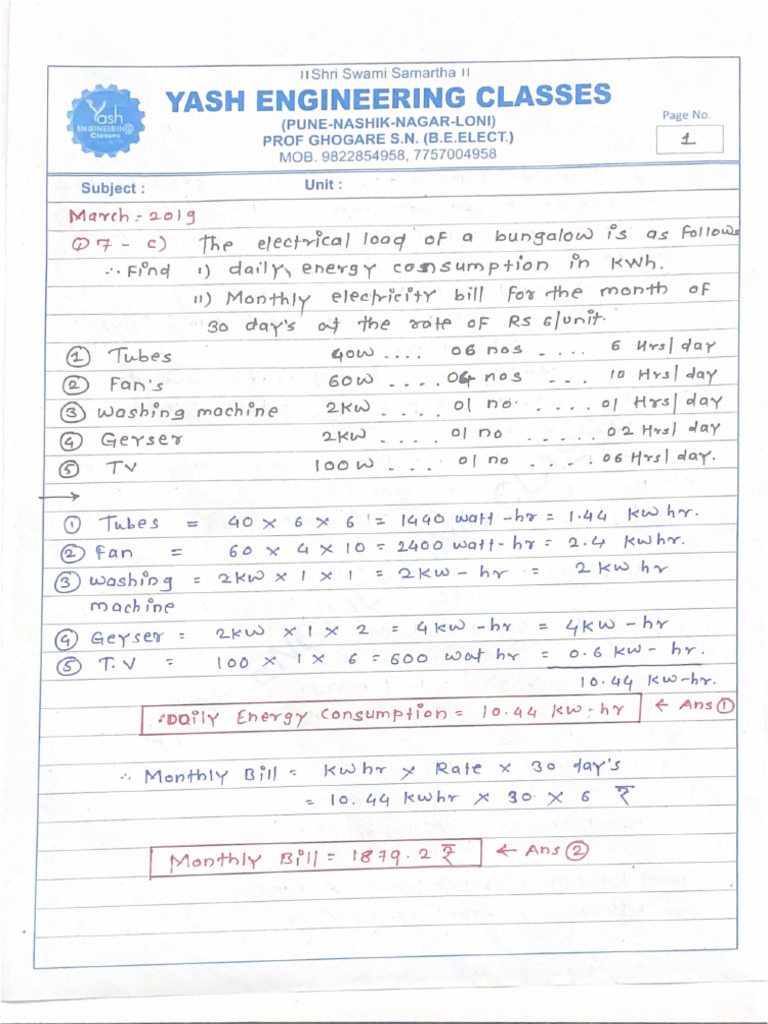 II Shri Swami Samartha II
YASH ENGINEERING CLASSES
(PUNE-NASHIK-NAGAR-LONI)
PROF GHOGARE S.N. (B.E.ELECT.)
MOB. 9822854958, 7757004958
Yash
ENGINEERING
Classes
Page No.
1
Subject : Unit :
March:- 2019
Q 7 - c) The electrical load of a bungalow is as follows
∴ Find i) daily energy consumption in kWh.
ii) Monthly electricity bill for the month of
30 day's at the rate of Rs 6/unit.
① Tubes 40W .... 06 nos .... 6 Hrs/day
② Fan's 60W .... 04 nos ... 10 Hrs/day
③ washing machine 2KW .... 01 no. .... 01 Hrs/day
④ Geyser 2KW .... 01 no ..... 02 Hrs/day
⑤ TV 100W ... 01 no ... 06 Hrs/day.
→
① Tubes = 40 × 6 × 6 = 1440 watt-hr = 1.44 kw hr.
② Fan = 60 × 4 × 10 = 2400 watt-hr = 2.4 kwhr.
③ washing = 2KW × 1 × 1 = 2KW-hr = 2 KW hr
machine
④ Geyser = 2KW × 1 × 2 = 4KW-hr = 4KW-hr
⑤ T.V = 100 × 1 × 6 = 600 wat hr = 0.6 KW-hr.
10.44 KW-hr.
∴ Daily Energy Consumption = 10.44 KW-hr ← Ans ①
∴ Monthly Bill = KWhr × Rate × 30 day's
= 10.44 KWhr × 30 × 6 ₹
Monthly Bill = 1879.2 ₹ ← Ans ②